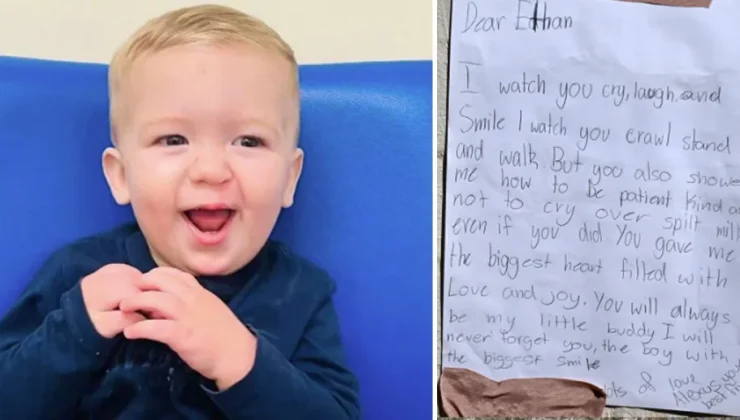 Dear Ethan
I watch you cry, laugh and
Smile I watch you crawl stand
and walk. But you also showe
me how to be patient kind a
not to cry over spilt mil
even if you did You gave me
the biggest heart filled with
Love and joy. You will always
be my little buddy I will
never forget you, the boy with
the biggest smile
lots of love
Alexus
best